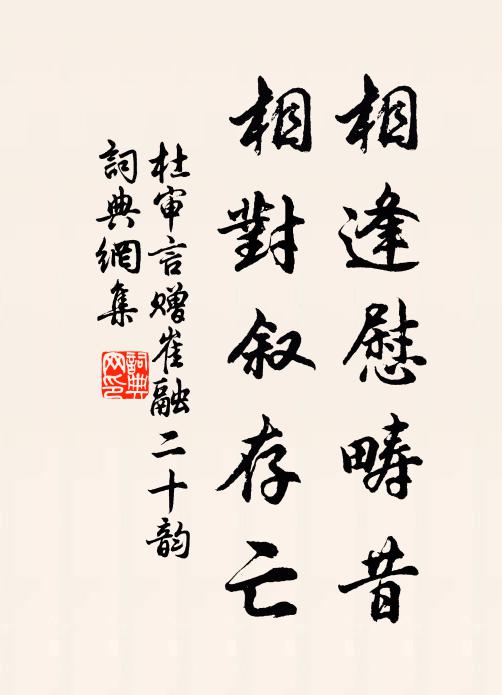 相逢慰畴昔
相對叙存亡
杜审言赠崔融二十韵
詞典網集
詞典网印